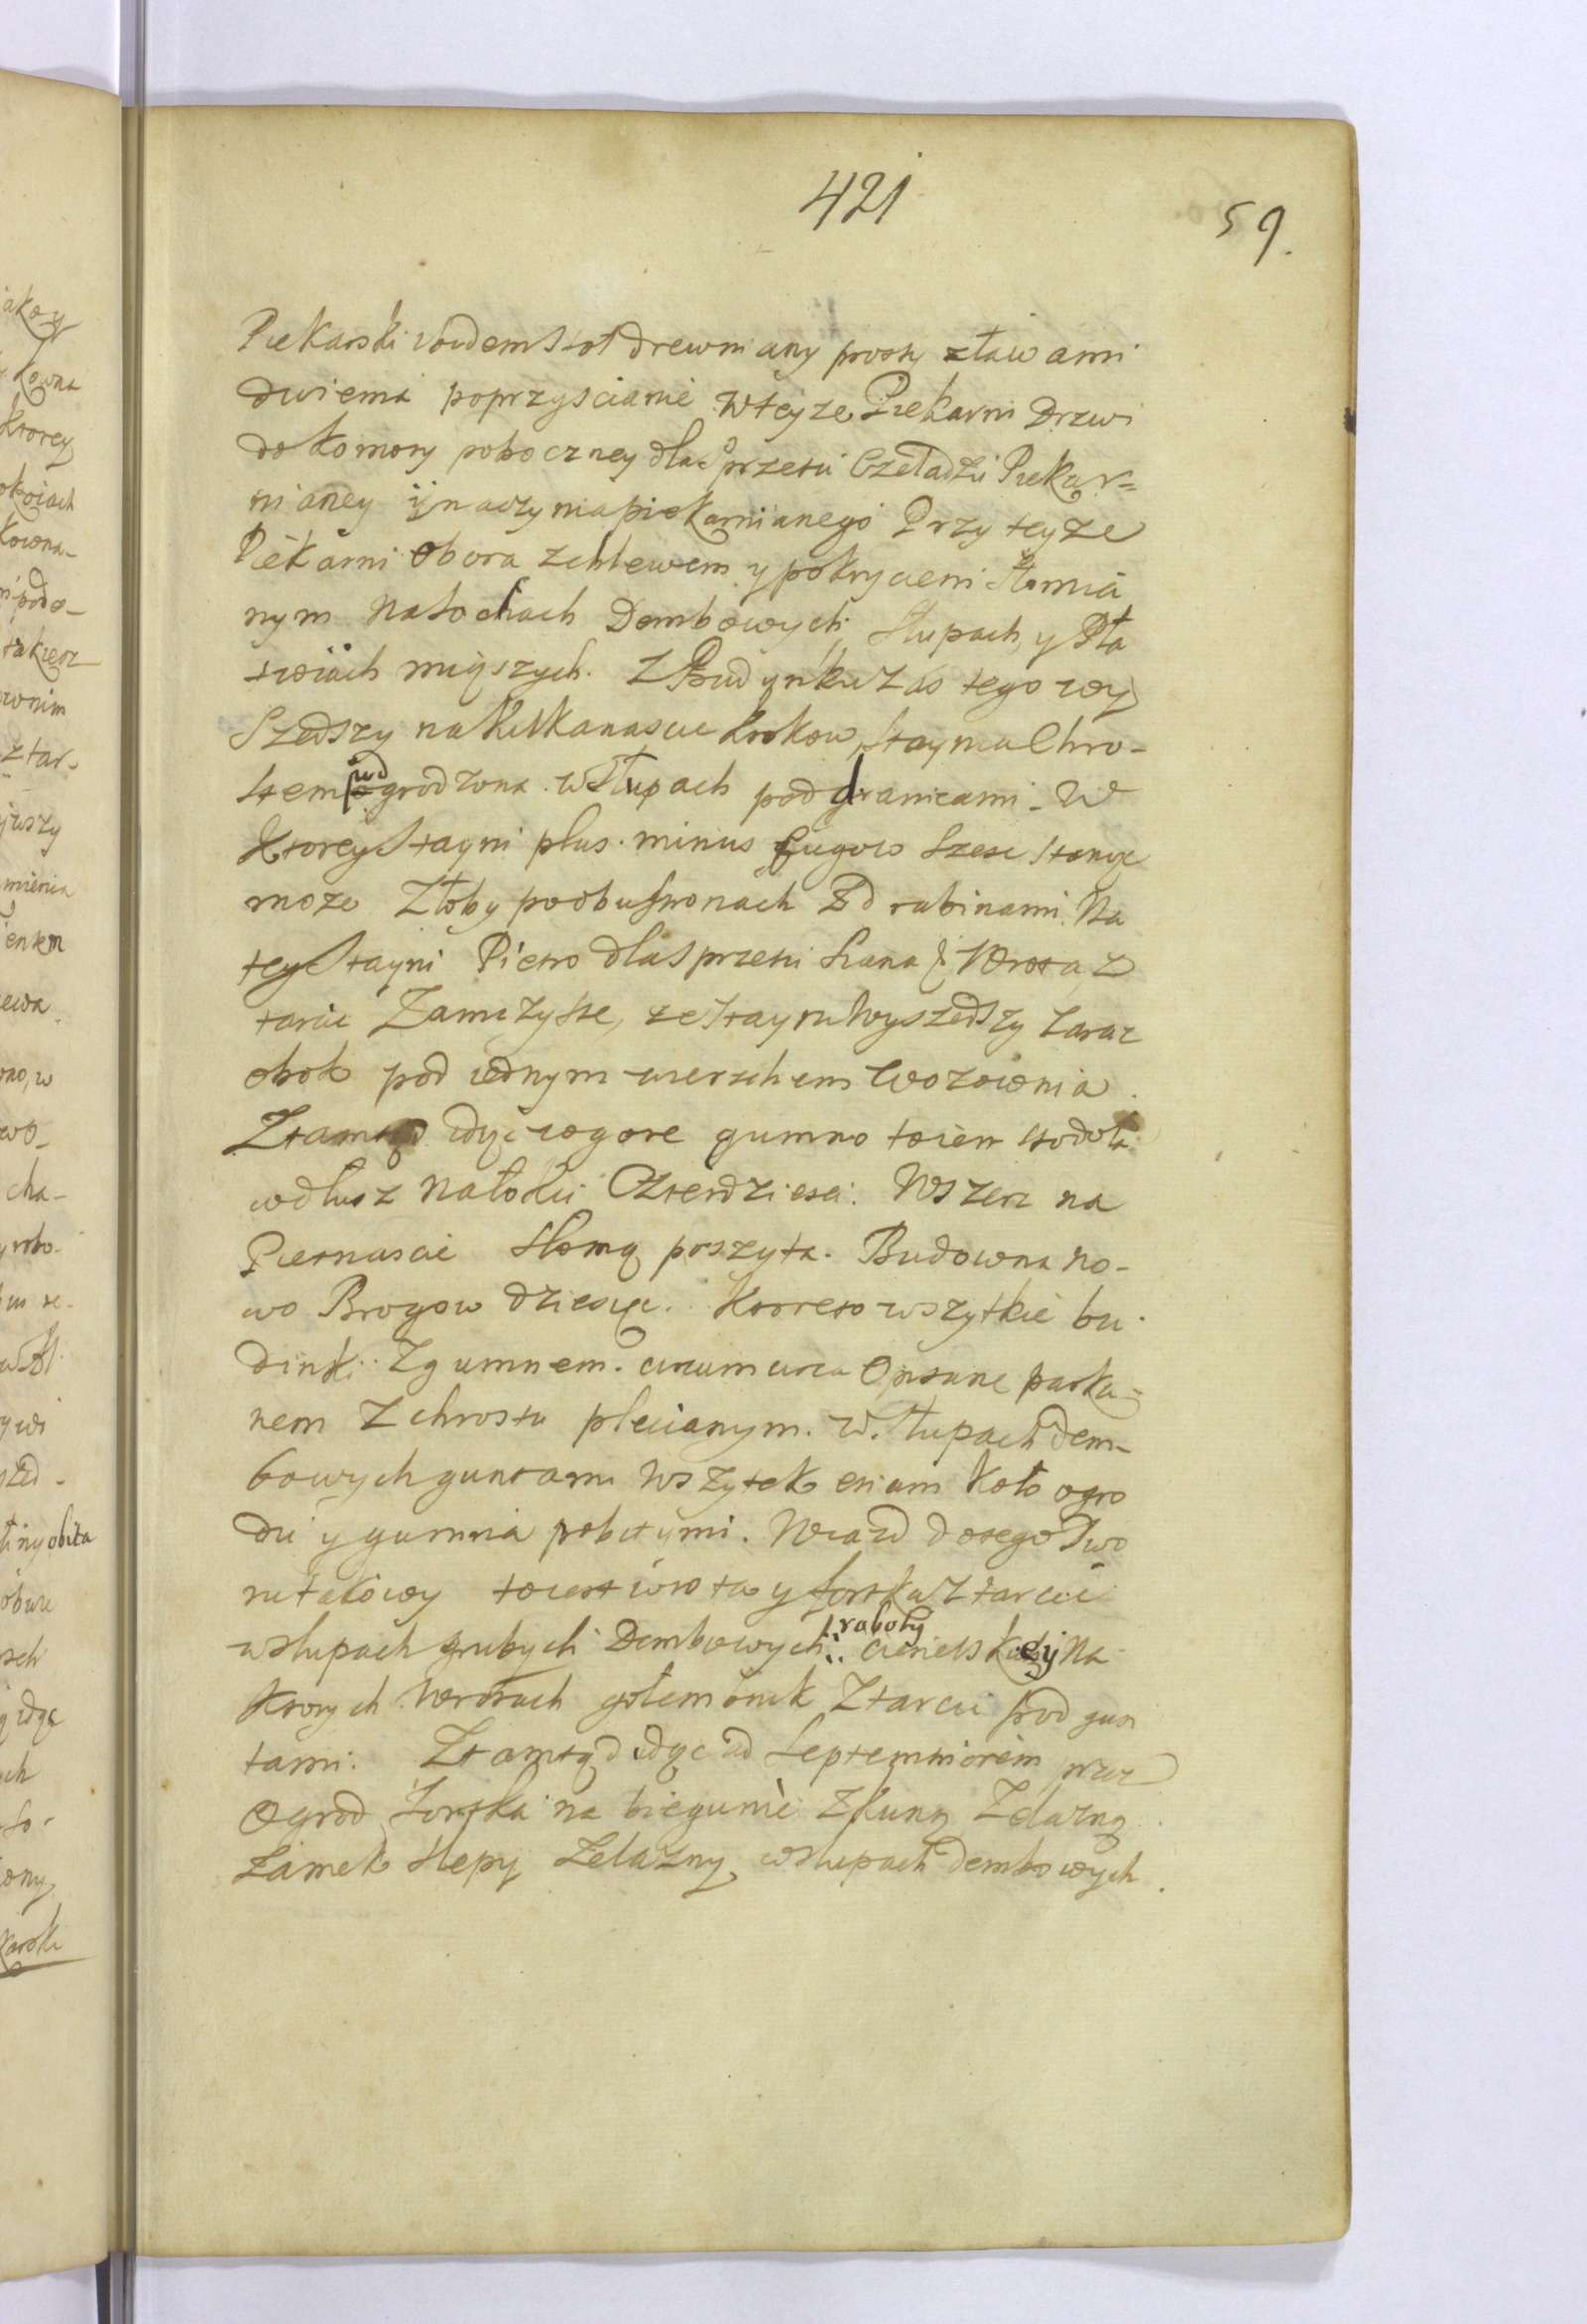 421
59.
Piekarski ibidem Stoł drewniany prosty zławami
dwiema poprzyscianie wteyze Piekarni Drzwi
do komory poboczney dla Sprzetu Czeladzi Piekar=
nianey ij naczynia piekarnianego Przy teyze
Piekarni Obora zchlewem y pokryciem Słomia
nym na sochach Dembowych Słupach, y Pła
twiach mięszych. Z Budynku zas tego wy
Szedszy na kilkanascie krokow, Staynia Chro-
stem pogrodzona w Słupach pod dranicami. W
Ktorey Stayni plus minus Cugow Szesc Stanąc
moze Złoby po obu stronach Z drabinami. Na
tey Stayni Pietro dla sprzetu Siana & Wrota, z
tarcic Zamczyste, ze Stayni Wyszedszy zaraz
obok pod iednym wierzchem Wozownia.
Ztamtąd idąc wgore gumno to iest stodoła
wdłusz na łokci Czterdziesci. Wszerz na
Pietnascie Słomą poszyta. Budowana no-
wo Brogow dziesięc. Ktore to wszytkie bu
dinki Zgumnem circumcirca Opisane parka=
nem z chrostu plecianym. W. Słupach dem-
bowych guntami Wszytek etiam koło ogro
du y gumna pobitymi. Wiazd do tego Dwo
ru takowy to iest wrota y fortka z tarcic
wslupach grubych Dembowych roboty ciesielskiey Na
ktorych Wrotach gołembnik Ztarcic pod gun
tami. Ztamtąd idąc ad Septemtrionem przez
Ogrod fortka na biegunie Zkuną Zelazną
Zamek slepy Zelazny, wslupach dembowych.